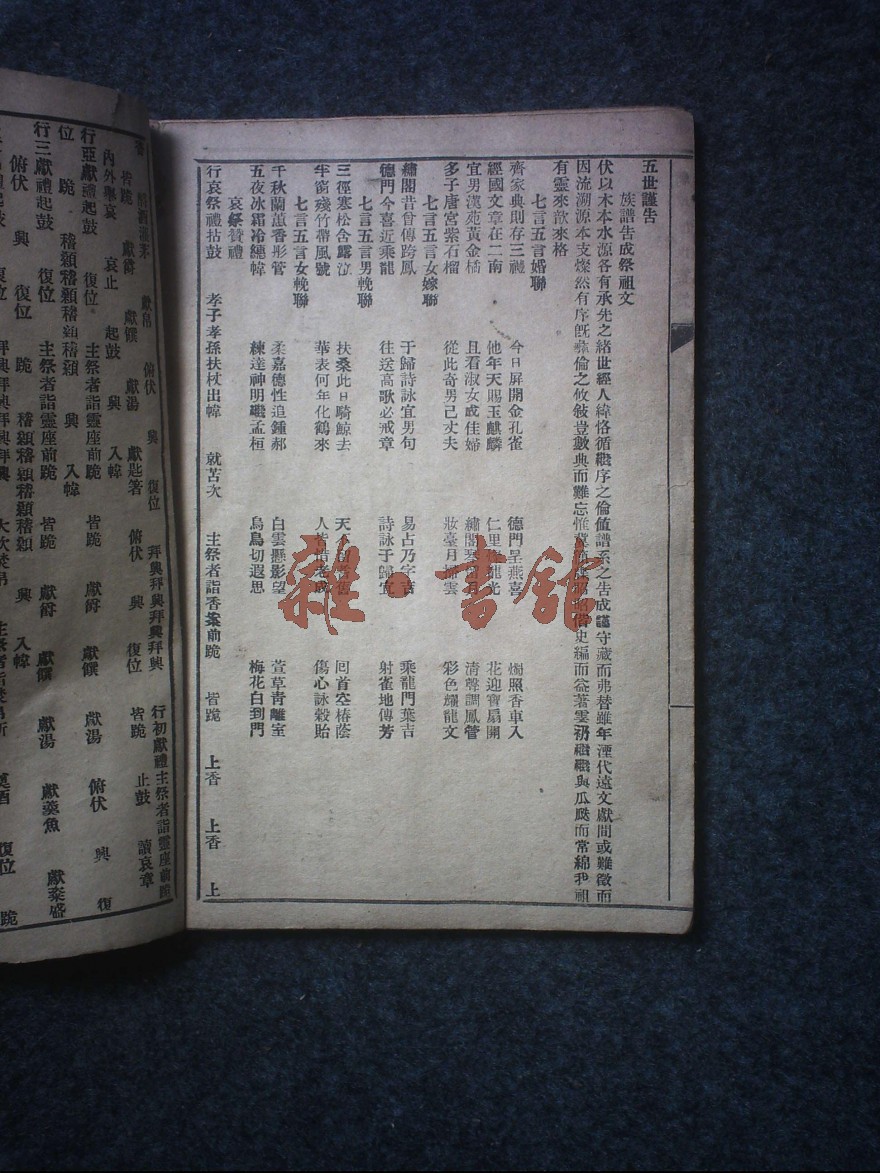 五世謹告
族譜告成祭祖文
伏以木本水源各有承先之緒世經人緯恪循繼序之倫值譜系之告成謹守藏而弗替雖年湮代遠文獻間或難徵而
因流溯源本支燦然有序旣彞倫之攸敍豈數典而難忘惟冀 史編而益著雲礽繼繼與瓜瓞而常綿我祖
有靈來歆來格
七言五言婚聯
齊家典則存三禮 今日屏開金孔雀 德門呈燕喜 燭照香車入
經國文章在二南 他年天賜玉麒麟 仁里 龍光 花迎寶扇開
宜男漢苑黃金橘 且看淑女成佳婦 繡閣 月 清聲調鳳管
多子唐宮紫石榴 從此奇男已丈夫 妝臺月 雲 彩色耀龍文
七言五言女嫁聯
繡閣昔曾傳跨鳳 于歸詩詠宜男句 易占乃字吉 乘龍門葉吉
德門今喜近乘龍 往送高歌必戒章 詩詠于歸宜 射雀地傳芳
七言五言男輓聯
三徑寒松含露泣 扶桑此日騎鯨去 天 囘首空椿蔭
半窗殘竹帶風號 華表何年化鶴來 人皆惜老成 傷心詠穀貽
七言五言女輓聯
千秋蘭蕙香彤管 柔嘉德性追鍾郝 白雲懸影望 萱草靑離室
五夜冰霜冷繐幃 練達神明繼孟桓 烏鳥切遐思 梅花白到門
哀祭贊禮
行哀祭禮拈鼓 孝子孝孫扶杖出幃 就苫次 主祭者詣香案前跪 皆跪 上香 上香 上
雜·書館
獻帛 俯伏 興 復位 拜興拜興拜興拜興 行初獻禮主祭者詣靈座前跪
皆跪 獻爵 獻饌 獻湯 獻匙箸 俯伏 興 復位 皆跪 止鼓 讀哀章
內外舉哀 哀止 起鼓 興 入幃
行亞獻禮起鼓 復位 主祭者詣靈座前跪 皆跪 獻爵 獻饌 獻湯 俯伏 興 復
位 跪 稽顙稽顙稽顙 興 入幃
行三獻禮起鼓 復位 主祭者詣靈座前跪 皆跪 獻爵 獻饌 獻湯 獻羹魚 獻粢盛
俯伏 興 復位 跪 稽顙稽顙稽顙 興 入幃